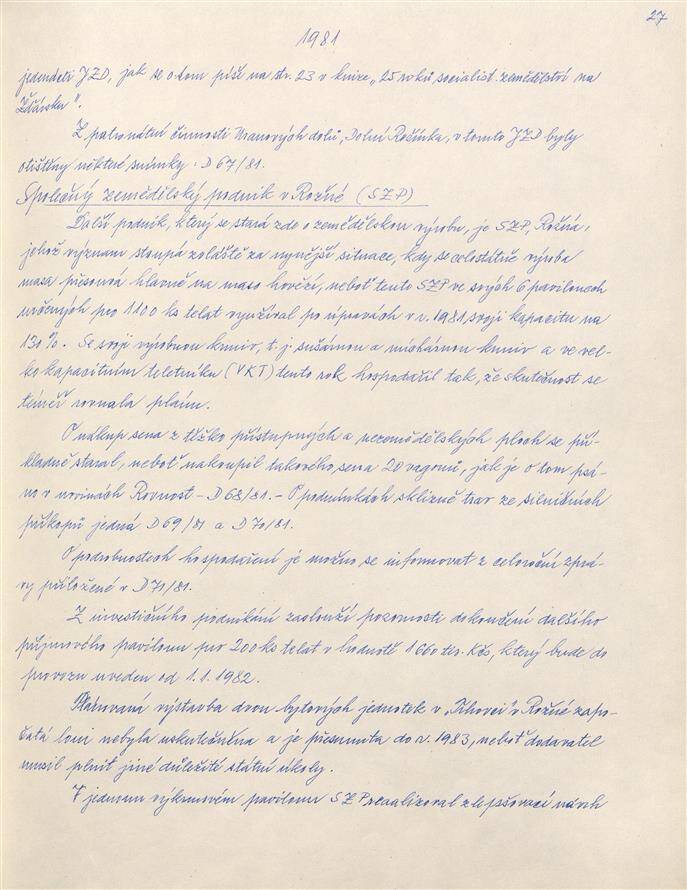 27
1981
jednoletí JZD, jak se o tom píší na str. 23 v knize „25 roků socialist. zemědělství na
Žďársku".
Z patronátní činnosti Uranových dolů, Dolní Rožínka, v tomto JZD byly
otištěny některé snímky - D 67/81.
Společný zemědělský podnik v Rožné (SZP)
Další podnik, který se stará zde o zemědělskou výrobu, je SZP, Rožná,
jehož význam stoupá zvláště za nynější situace, kdy se celostátně výroba
masa přesouvá hlavně na maso hovězí, neboť tento SZP ve svých 6 pavilonech
určených pro 1100 ks telat využíval po úpravách v r. 1981 svoji kapacitu na
130%. Se svojí výrobnou krmiv, t. j. sušárnou a míchárnou krmiv a ve vel-
kokapacitním teletníku (VKT) tento rok hospodařil tak, že skutečnost se
téměř rovnala plánu.
O nákup sena z těžko přístupných a nezemědělských ploch se pří-
kladně staral, neboť nakoupil takového sena 20 vagonů, jak je o tom psá-
no v novinách Rovnost - D 68/81. - O podmínkách sklizně trav ze silničních
příkopů jedná D 69/81 a D 70/81.
O podrobnostech hospodaření je možno se informovat z celoroční zprá-
vy přiložené v D 71/81.
Z investičního podnikání zaslouží pozornosti dokončení dalšího
příjmového pavilonu pro 200 ks telat v hodnotě 1660 tis. Kčs, který bude do
provozu uveden od 1.1.1982.
Plánovaná výstavba dvou bytových jednotek v „Tihovci" v Rožné zapo-
čatá loni nebyla uskutečněna a je přesunuta do r. 1983, neboť dodavatel
musil plnit jiné důležité státní úkoly.
V jednom výkrmovém pavilonu SZP realizoval zlepšovací návrh